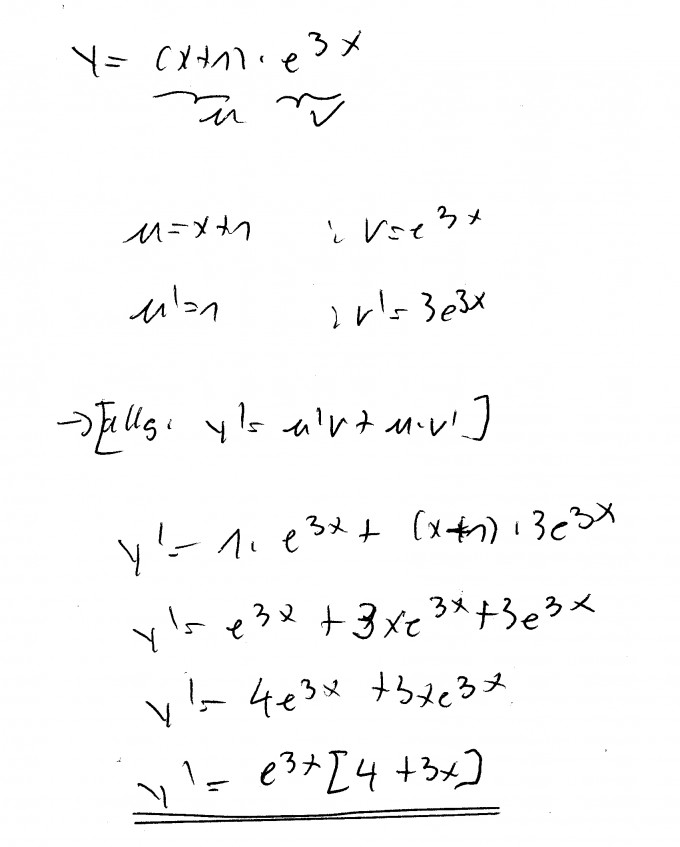 y = (x+1) · e^3x
u v
u = x+1 ; v = e^3x
u' = 1 ; v' = 3e^3x
→ [allg. y' = u'v + u·v']
y' = 1 · e^3x + (x+1) · 3e^3x
y' = e^3x + 3xe^3x + 3e^3x
y' = 4e^3x + 3xe^3x
y' = e^3x [4 + 3x]